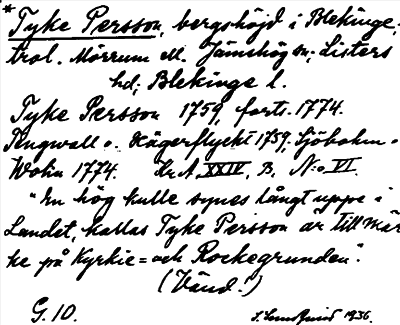 * Tyke Persson, bergshöjd i Blekinge,
trol. Mörrum el. Jämshög sn, Listers
hd, Blekinge l.
Tyke Persson 1759, forts. 1774.
Ringwall o. Hägerflyckt 1759, Sjöbohm o.
Wolin 1774. Kr. A. XXIV, B, N:o VI.
"En hög kulle synes långt uppe i
Landet, kallas Tyke Persson är till mär
ke på Kyrkie= och Rockegrunden".
(Vänd!)
G. 10. 1936.